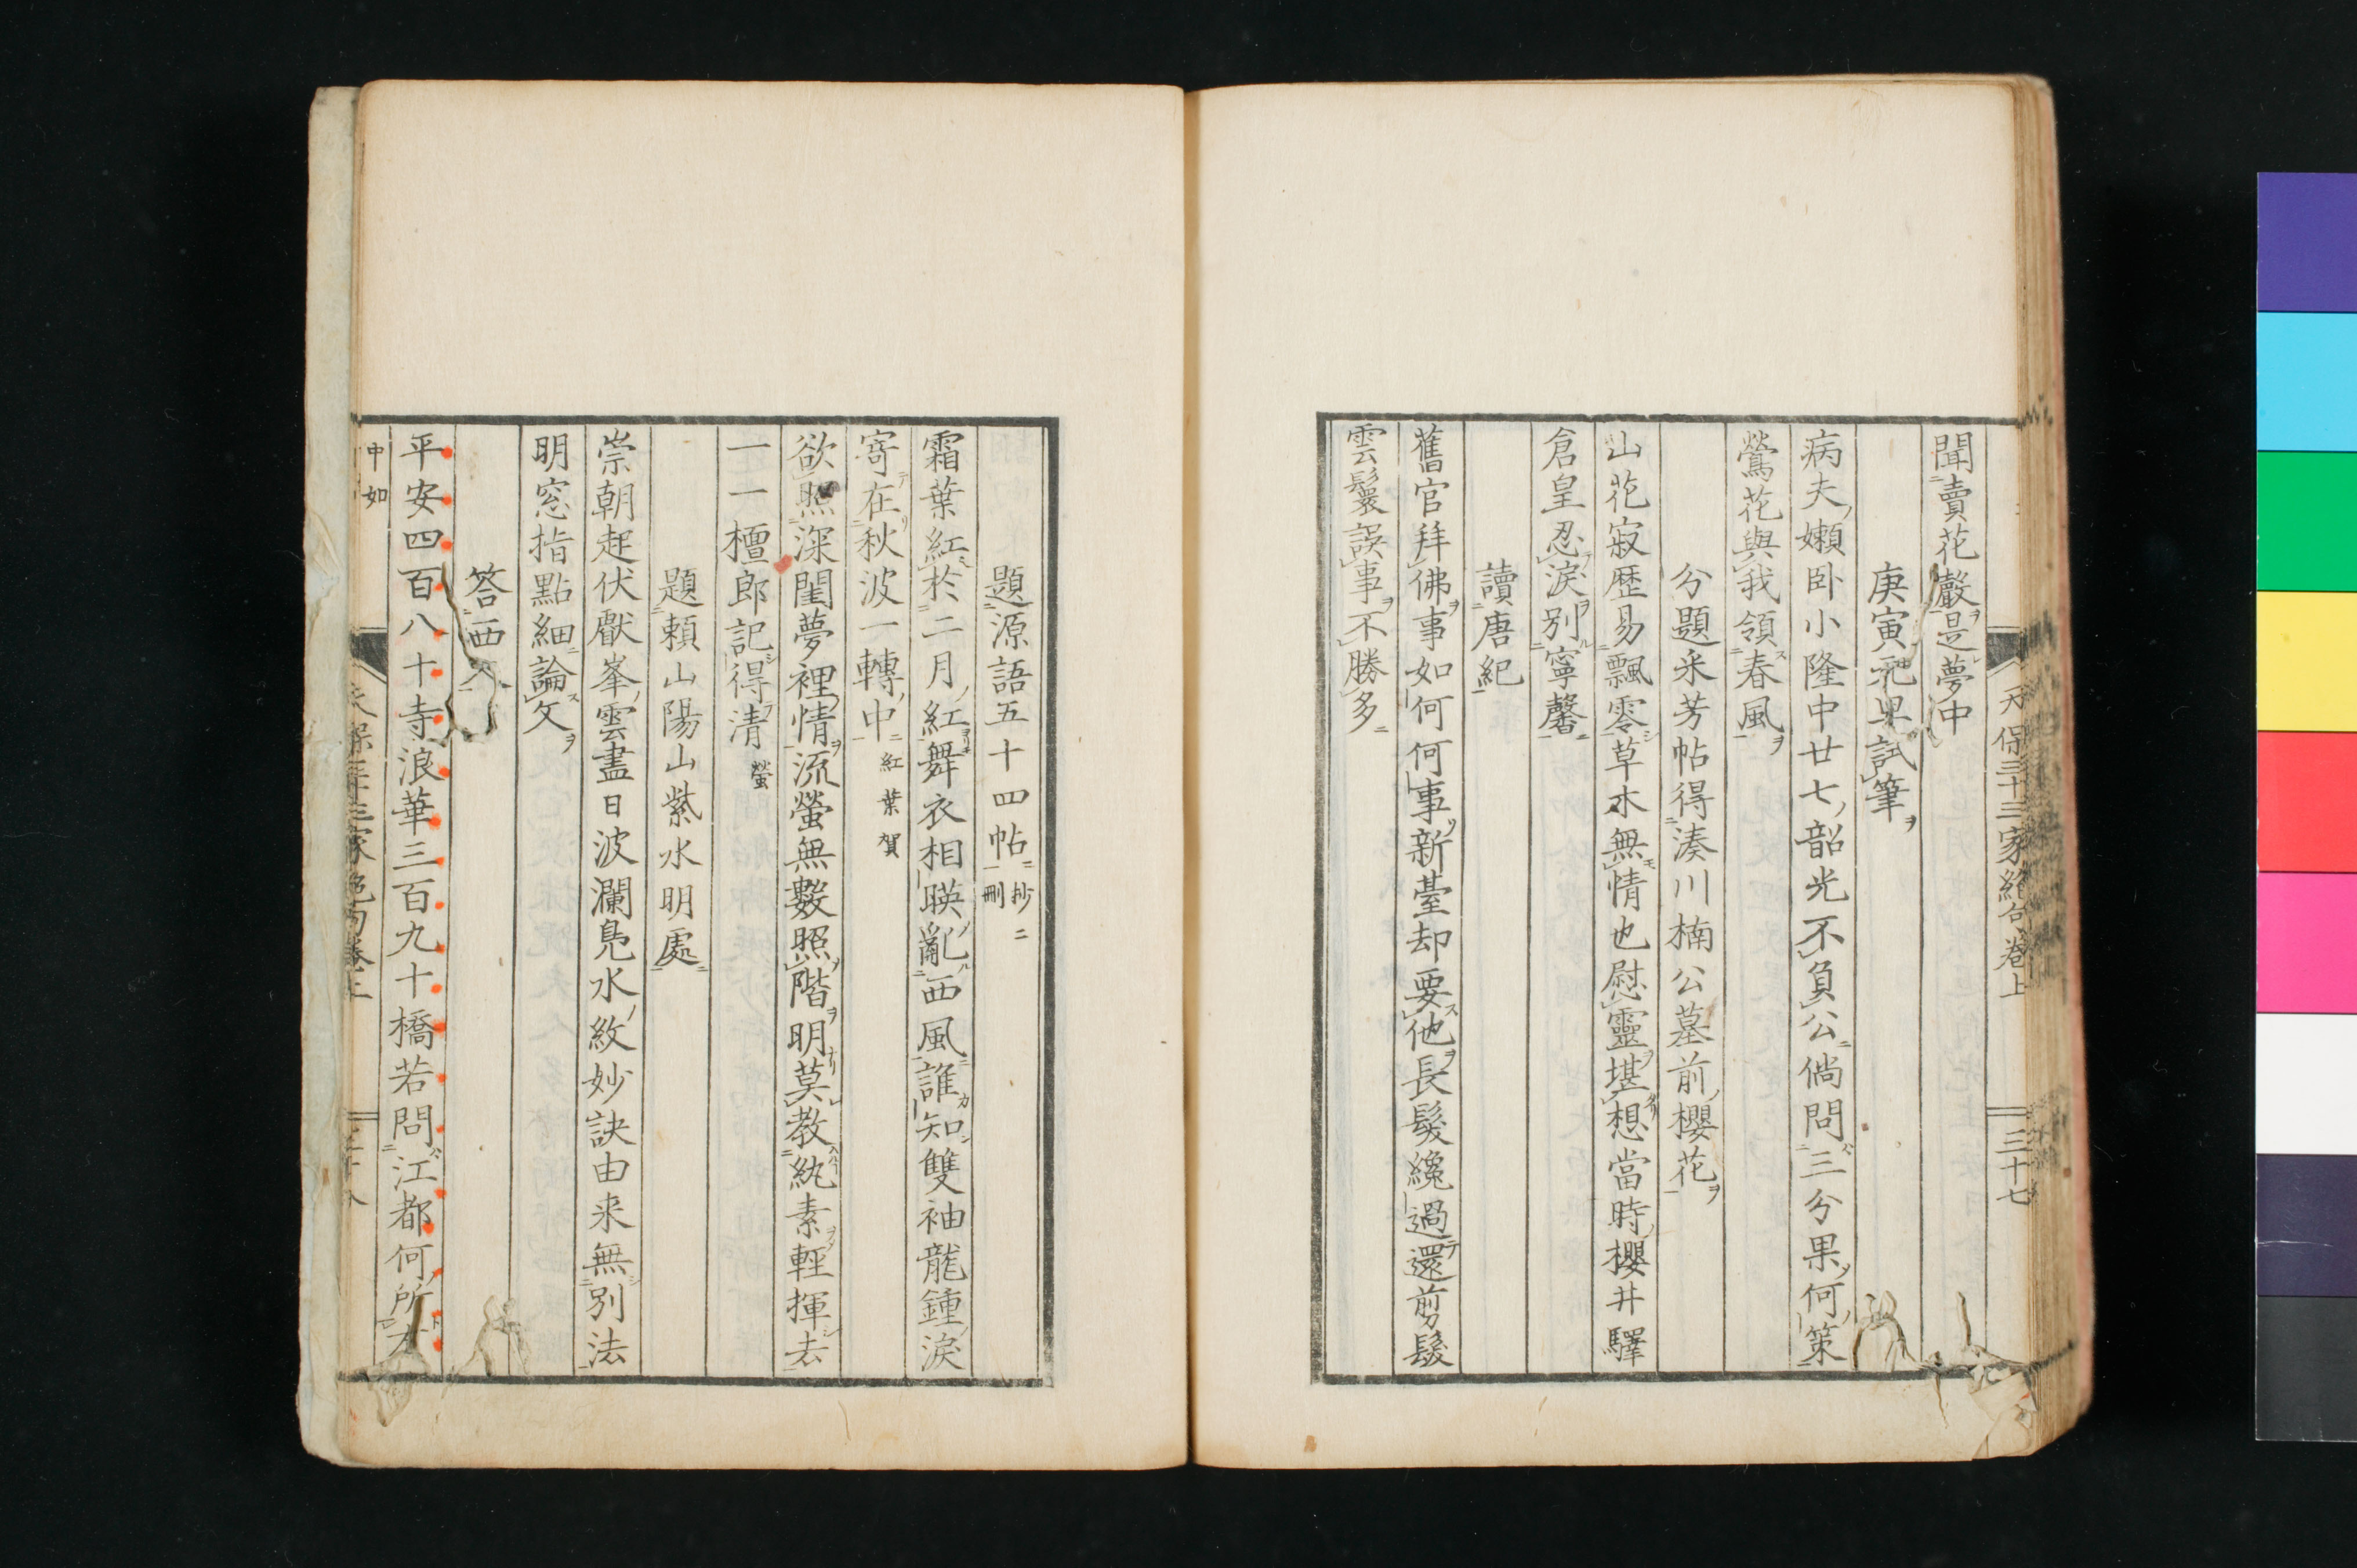 天保三十三家絶句卷上 三十七
聞賣花聲是夢中
庚寅元旦試筆
病夫嬾臥小隆中廿七韶光不負公倘問三分果何策
鶯花與我領春風
分題采芳帖得湊川楠公墓前櫻花
山花寂歷易飄零草木無情也慰靈堪想當時櫻井驛
倉皇忍淚別寧馨
讀唐紀
舊官拜佛事如何何事新臺却要他長髮纔過還剪髮
雲鬟誤事不勝多
題源語五十四帖抄二刪一
霜葉紅於二月紅舞衣相映亂西風誰知雙袖龍鍾淚
寄在秋波一轉中紅葉賀
欲照深閨夢裡情流螢無數照階明莫教紈素輕揮去
一一檀郎記得清螢
題賴山陽山紫水明處
崇朝起伏獻峯雲盡日波瀾見水紋妙訣由来無別法
明窓指點細論文
答西人
平安四百八十寺浪華三百九十橋若問江都何所
中如